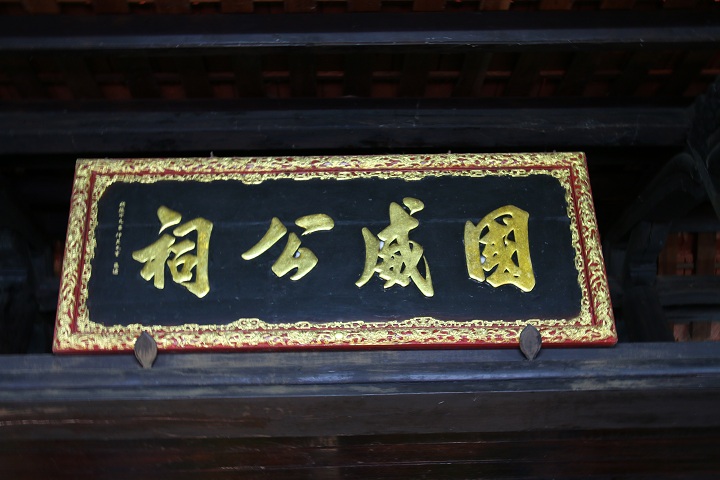 國威公祠